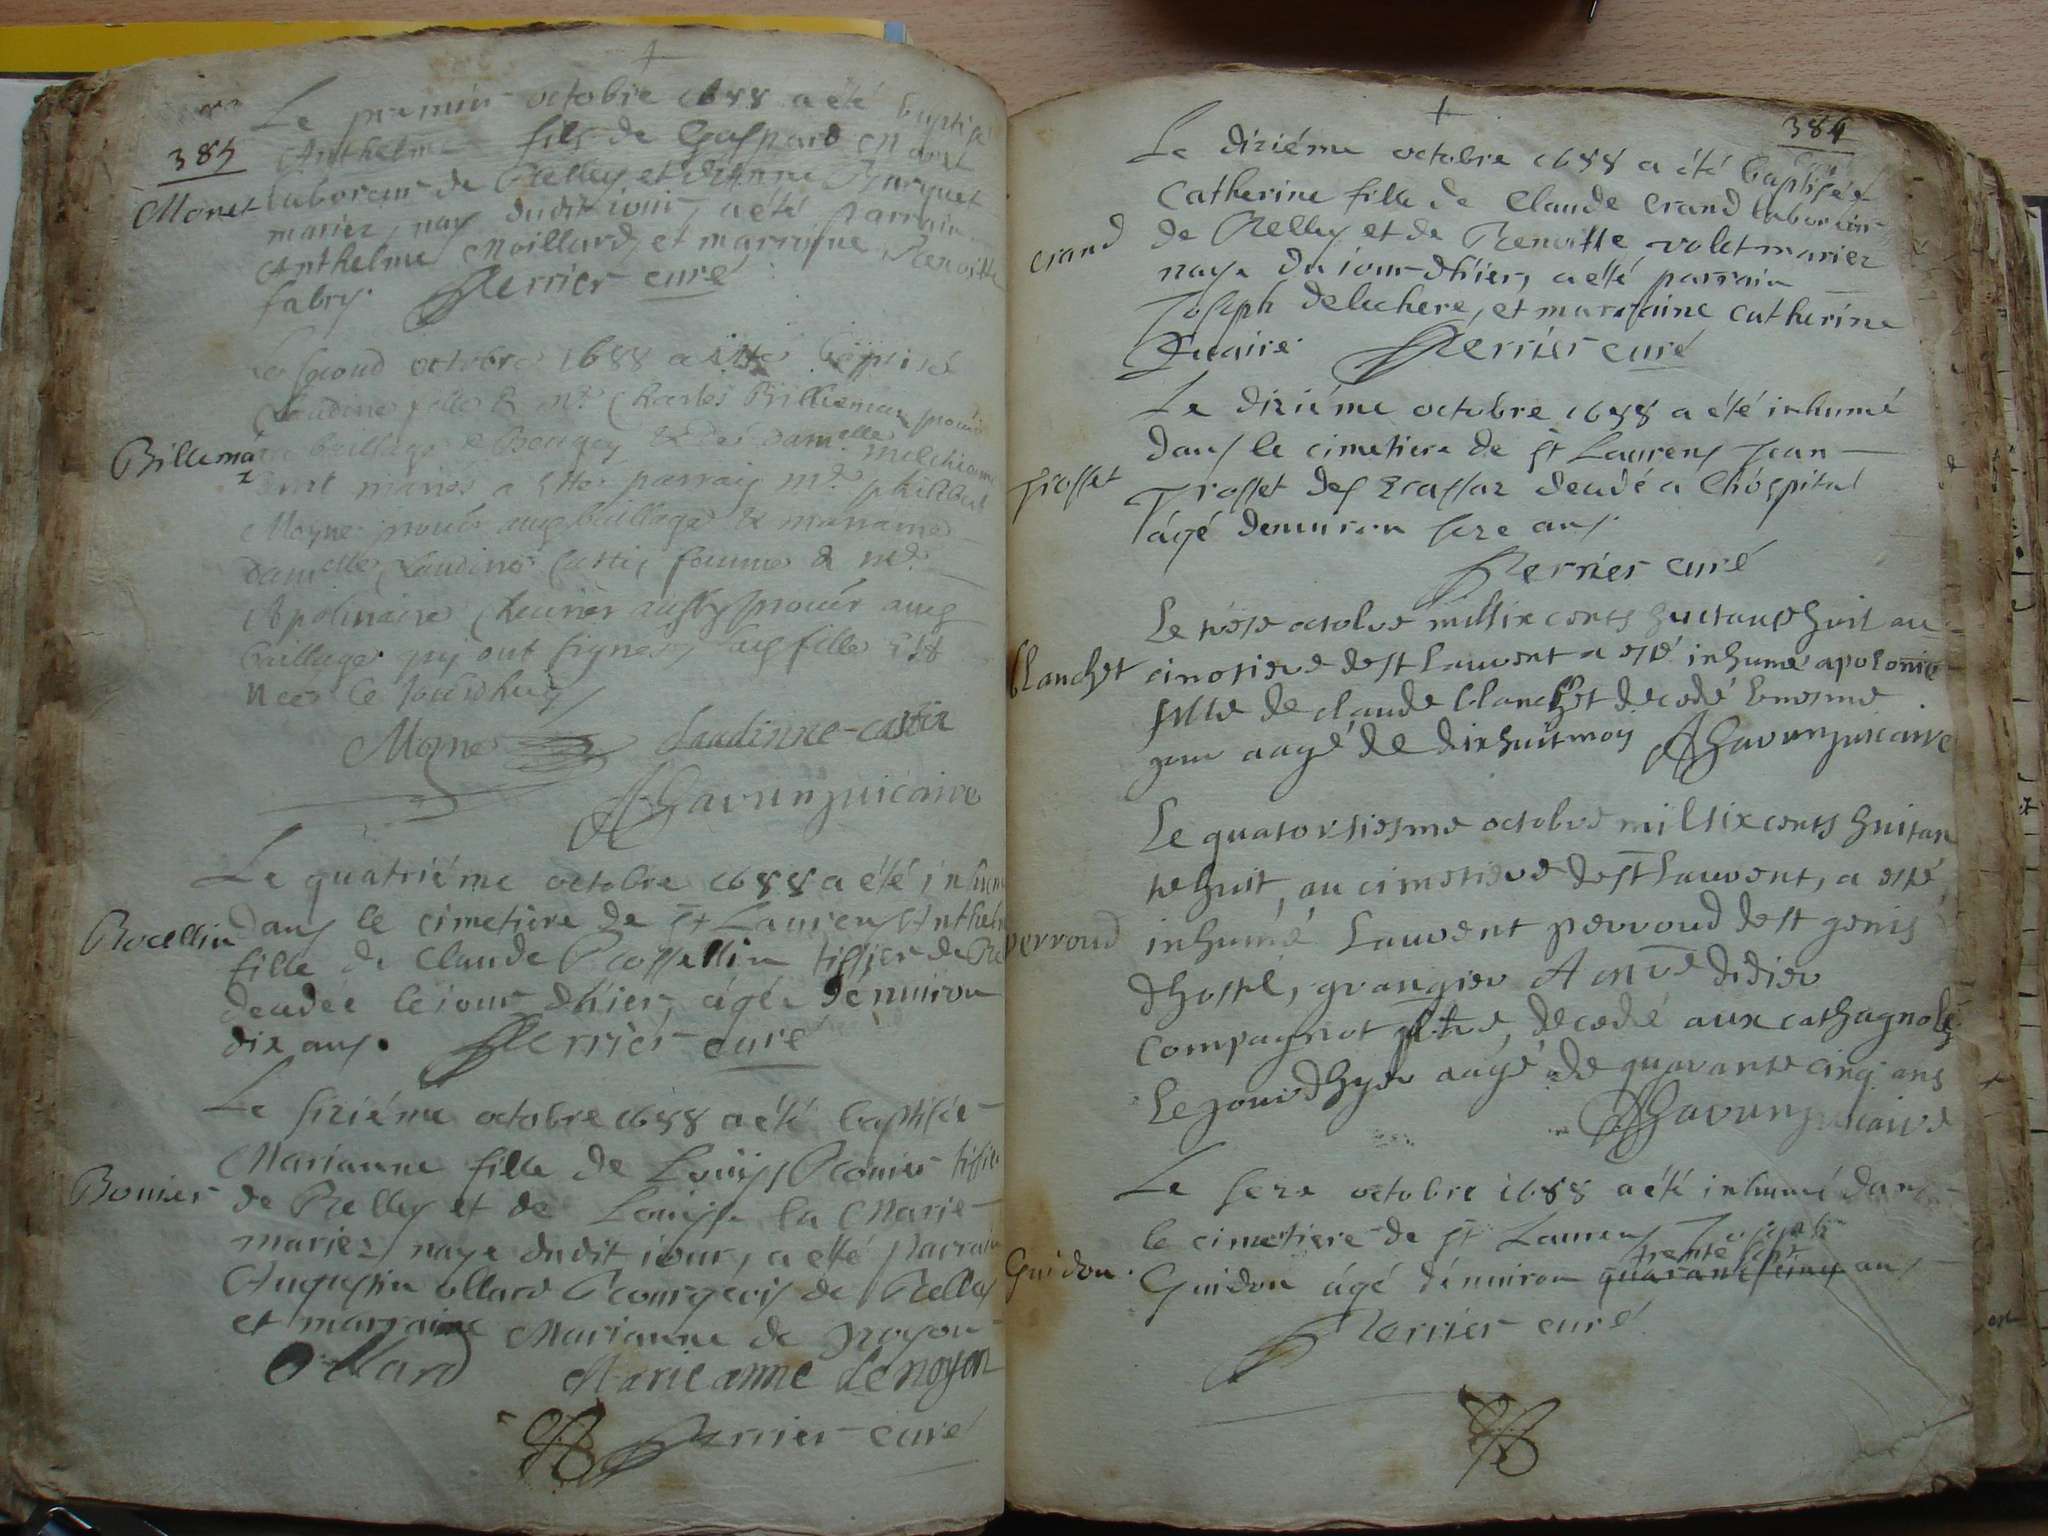 385
Le premier octobre 1688 a été baptisé
Anthelme fils de Gaspard Monet
Monet
laboreur de Belley et d'Anne
mariez, nay dudit iour, a été parrain
Anthelme Moillard, et marraine Benoitte
fabry. Perrier curé
Le second octobre 1688 a été baptisé
Claudine fille de mr Charles Billiema
Billema
bailliage de Beugey & de damelle Melchionne
mariés a este parrain mr philibert
Moyne procur auxd bailliage & marraine
damelle Claudine Castin femme de mr
Apolinaire Chevrier aussy procur auxd
bailliage qui ont signés, lad fille est
née ce jourdhuy
Moyne Claudinne-castin
vicaire
Le quatriéme octobre 1688 a été inhumé
dans le cimetière de St Laurens Anthel
Rocellin
fille de Claude Rossellin tissier de Be
decedée le iour d'hier, âgée d'enuiron
dix ans. Perrier curé
Le siziéme octobre 1688 a été baptisée
Marianne fille de Louys Bonier tissie
Bonier
de Belley et de Louyse la Marie
mariez, naye dudit iour, a été parrain
Augustin ollard Bourgeois de Belley
et marraine Marianne de Noyon
Ollard Marie anne de noyon
Perrier curé
384
Le diziéme octobre 1688 a été baptisée
Catherine fille de Claude Crand laboreur
crand
de Belley et de Benoitte volet mariez
naye du iour d'hier, a été parrain
Joseph delechere, et marraine catherine
Quaire. Perrier curé
Le diziéme octobre 1688 a été inhumé
dans le cimetiere de St Laurens Jean
Trosset
Trosset des Ecassaz decedé a l'hôspital
âgé d'enuiron seze ans.
Perrier curé
Le trésie octobre mil six cents huictante huit au
blanchet
cimetiere de st Laurent a esté inhumé apolonie
fillie de claude blanchet decedé le mesme
jour aagé de dixhuit mois vicaire
Le quatorsiesme octobre mil six cents huitan
te huit, au cimetiere de st Laurent, a esté
perroud
inhumé Laurent perroud de st genis
d'hostel, grangier A mre didier
compagnot ptre, decedé aux cathagnoles
Le jour d'hyer aagé de quarante cinq ans
vicaire
Le seze octobre 1688 a été inhumé dans
le cimetiere de St Laurens Joseph
trente sept
Guidon.
Guidon âgé d'enuiron quarante cinq ans
Perrier curé